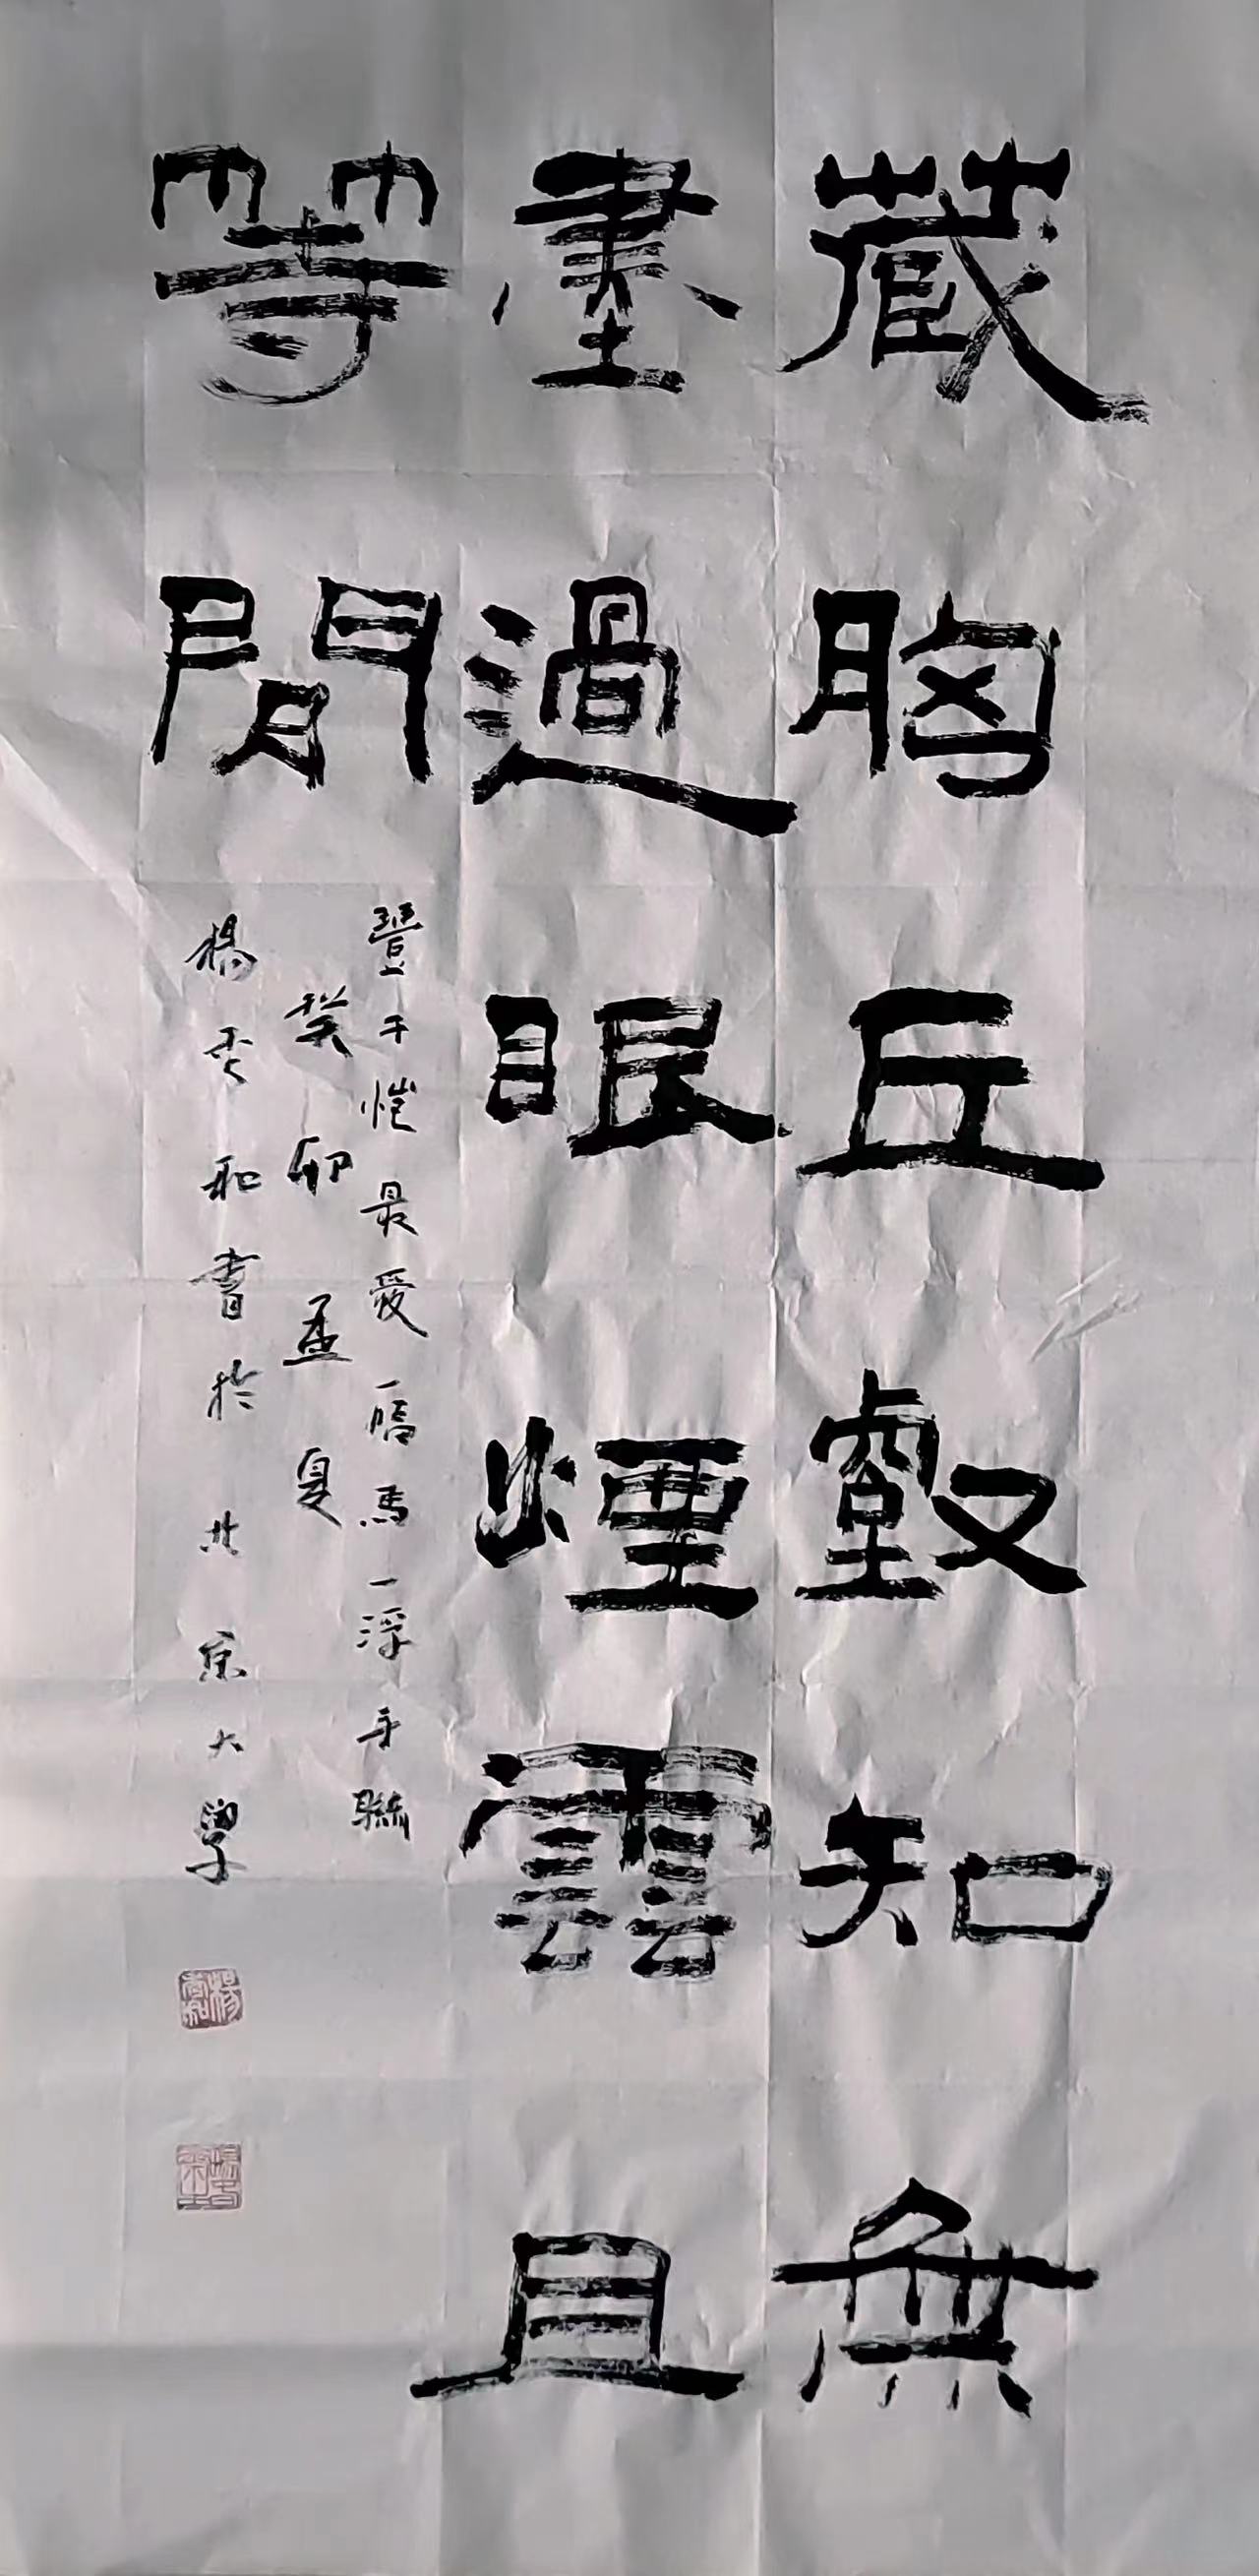 藏胸丘壑知無
盡過眼煙雲且
等閒
豐子愷最愛一幅馬一浮手聯
癸卯孟夏
楊和書於北京大學